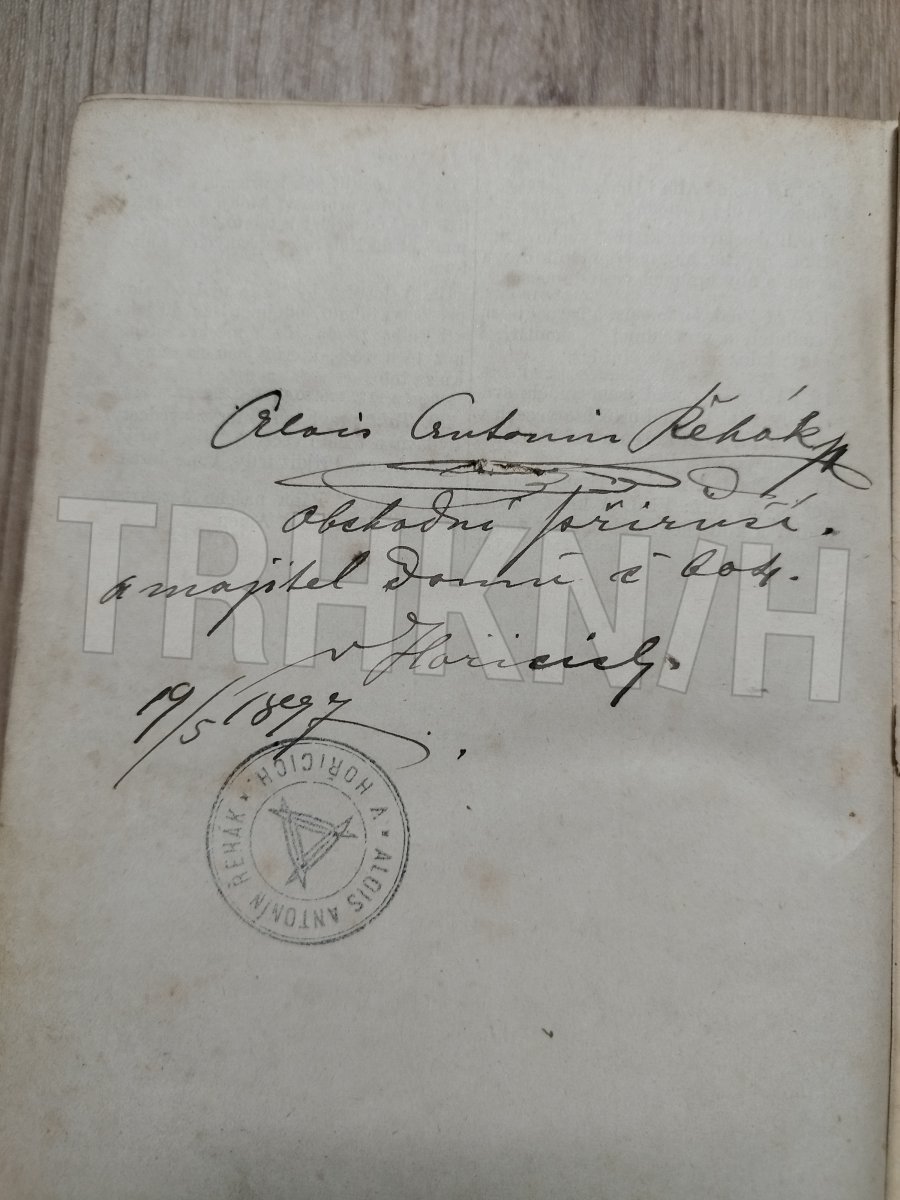 Alois Antonín Řehák
obchodní příručí.
a majitel domu č 604.
v Hořicích.
19/5 1897.
ALOIS ANTONÍN ŘEHÁK * V HOŘICICH. *
TRHKNIH